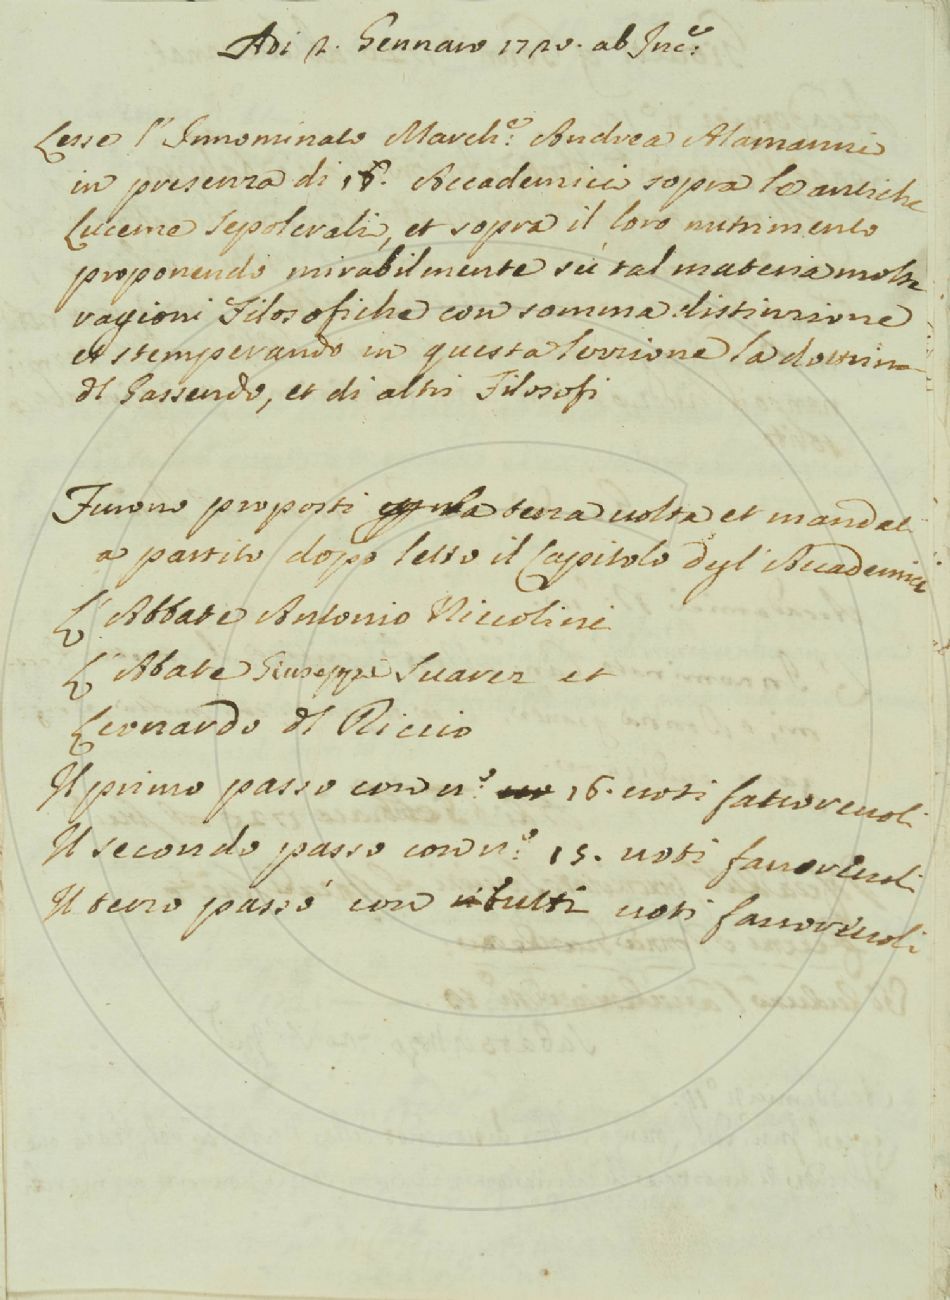 Adi 2. Gennaro 1720. ab Inc.e
Lesse l'Innominato March.e Andrea Alamanni
in presenza di 18. Accademici sopra le antiche
Lucerne Sepolcrali, et sopra il loro nutrimento
proponendo mirabilmente sù tal materia molte
ragioni Filosofiche con somma distinzione
et stemperando in questa lezzione la dottrina
del Gassendo, et di altri Filosofi
Furono proposti la terza uolta et mandati
a partito dopo letto il Capitolo degl'Accademici
L'Abbate Antonio Niccolini
L'Abate Giuseppe Suarez et
Leonardo del Riccio
Il primo passò con n.o 16. uoti fauoreuoli
Il secondo passò con n.o 15. uoti fauoreuoli
Il terzo passò con tutti uoti fauoreuoli